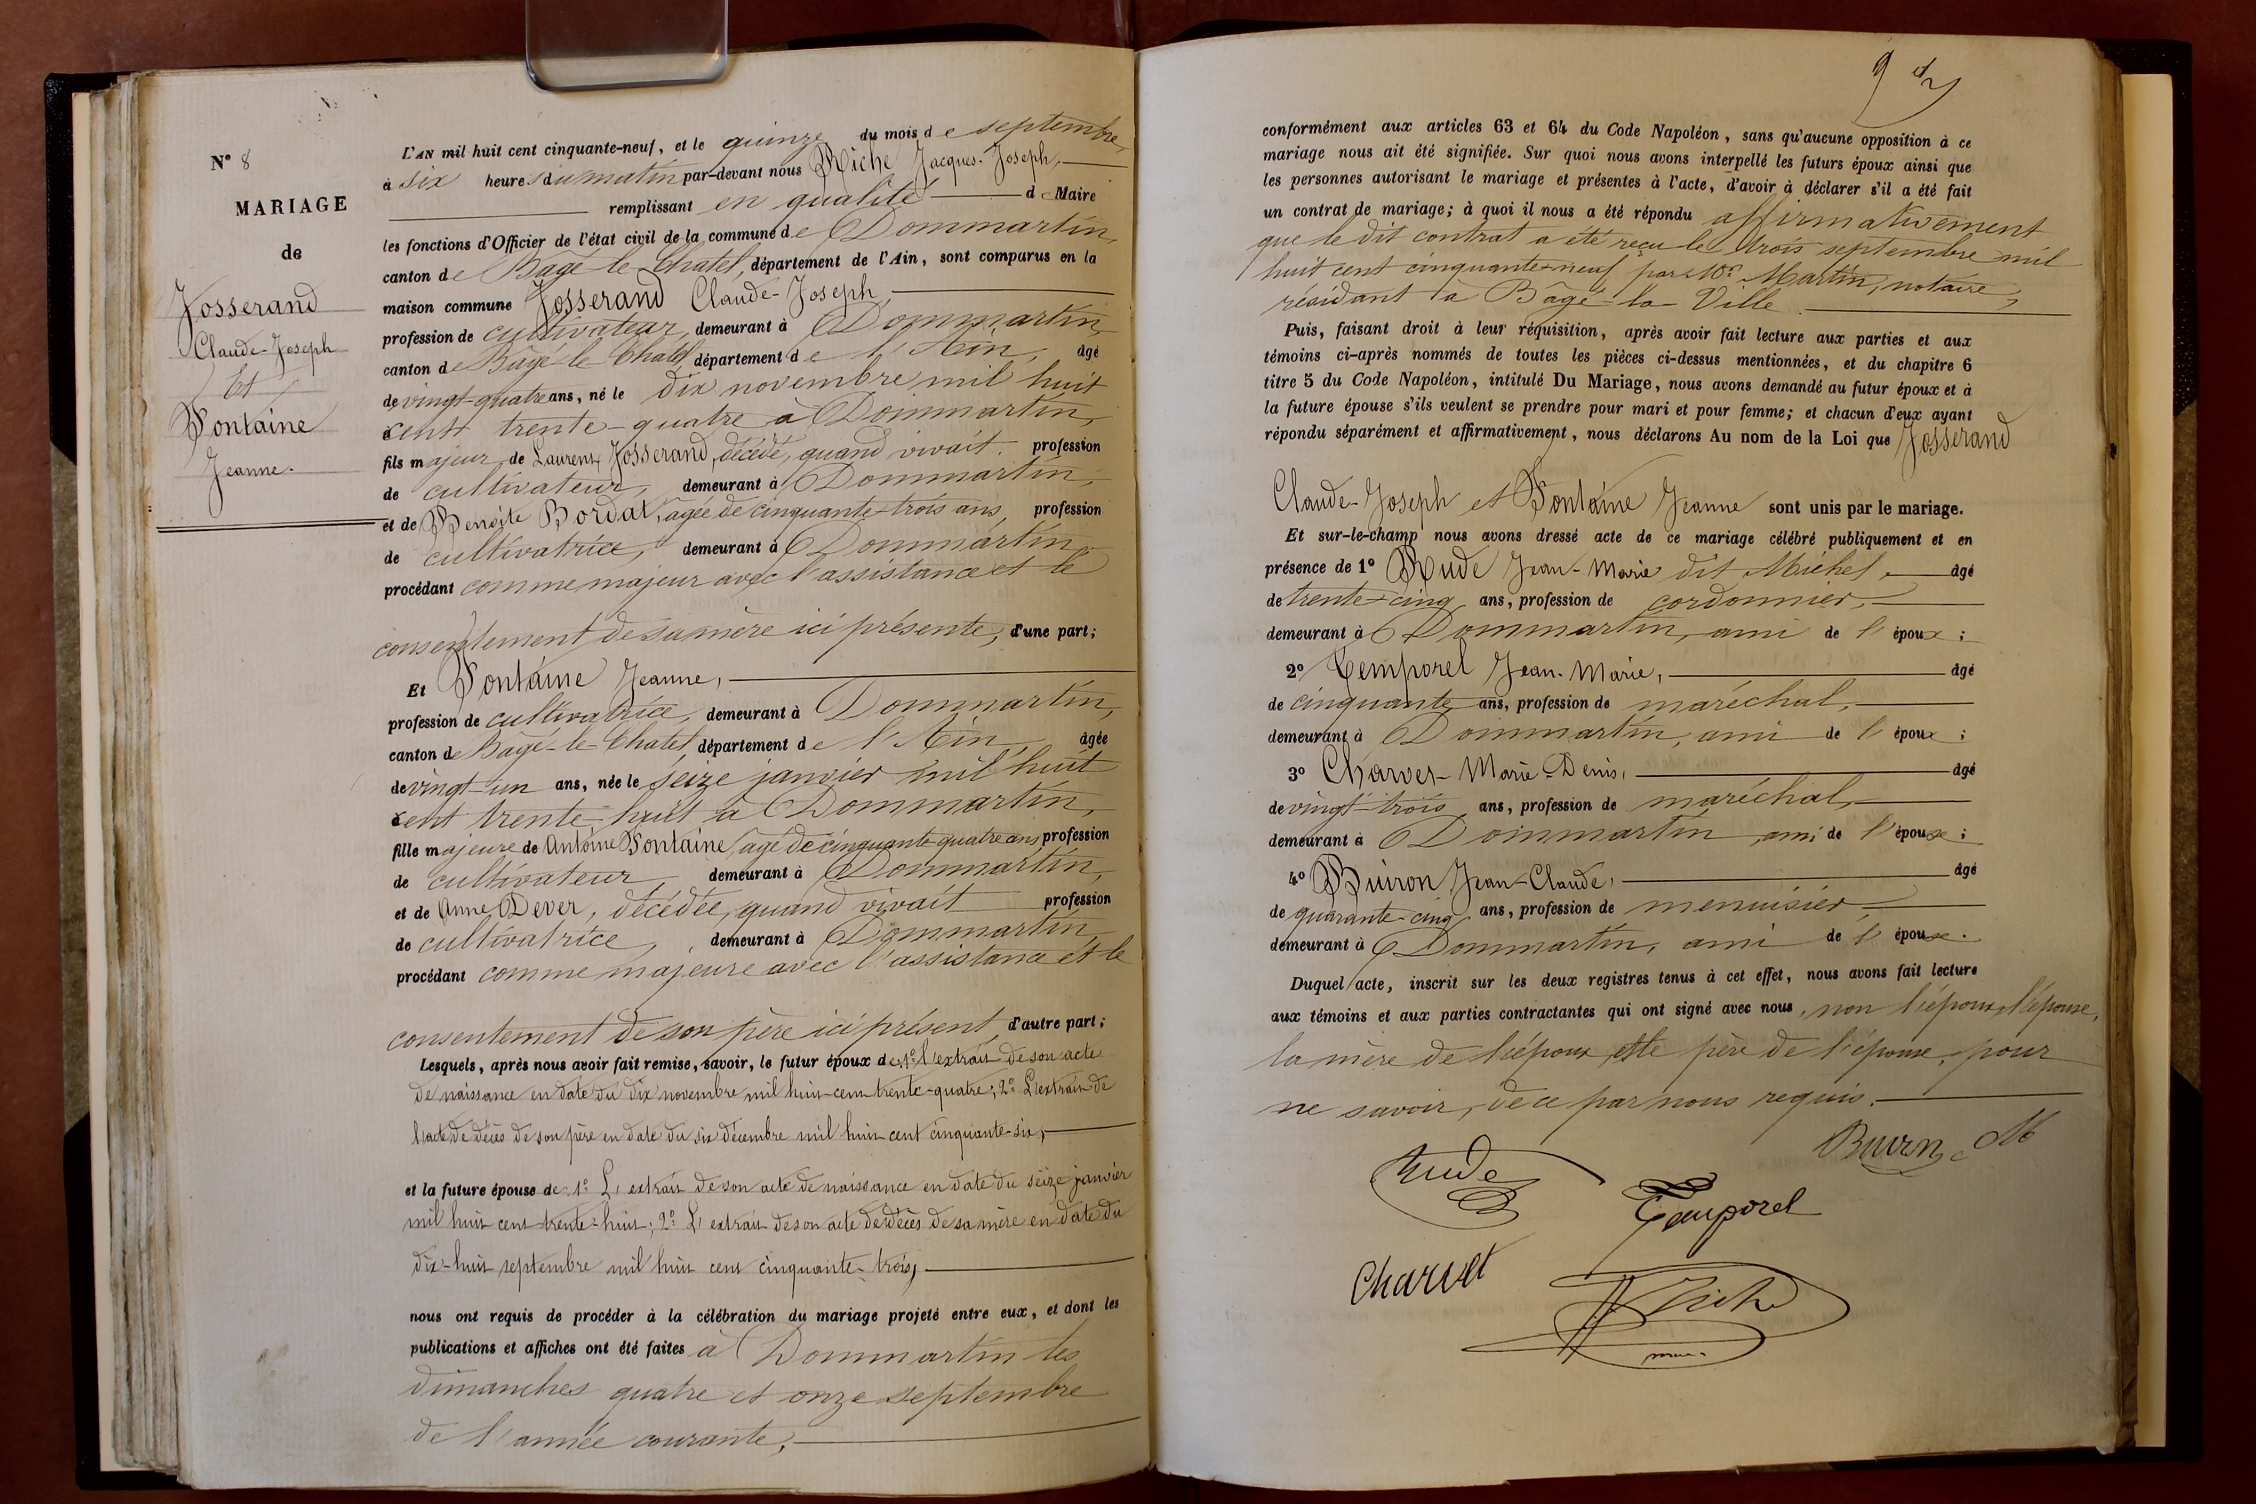 N° 8
MARIAGE
de
Josserand
Claude-Joseph
Et
Fontaine
Jeanne.
L'AN mil huit cent cinquante-neuf, et le quinze du mois de septembre,
à six heures du matin par-devant nous Riche Jacques-Joseph,
remplissant en qualité de Maire
les fonctions d'Officier de l'état civil de la commune de Dommartin,
canton de Bagé-le-Chatel, département de l'Ain, sont comparus en la
maison commune Josserand Claude-Joseph
profession de cultivateur, demeurant à Dommartin,
canton de Bâgé-le-Chatel, département de l'Ain, âgé
de vingt-quatre ans, né le dix novembre mil huit
cent trente-quatre à Dommartin,
fils majeur de Laurent Josserand, décédé, quand vivait profession
de cultivateur, demeurant à Dommartin,
et de Benoîte Bordat, agée de cinquante-trois ans, profession
de cultivatrice, demeurant à Dommartin
procédant comme majeur avec l'assistance et le
consentement de sa mère ici présente, d'une part;
Et Fontaine Jeanne,
profession de cultivatrice, demeurant à Dommartin,
canton de Bâgé-le-Chatel, département de l'Ain, âgée
de vingt-un ans, née le seize janvier mil huit
cent trente-huit à Dommartin,
fille majeure de Antoine Fontaine, agé de cinquante-quatre ans profession
de cultivateur, demeurant à Dommartin,
et de Anne Dever, décédée, quand vivait profession
de cultivatrice, demeurant à Dommartin
procédant comme majeure avec l'assistance et le
consentement de son père ici présent, d'autre part;
Lesquels, après nous avoir fait remise, savoir, le futur époux de: 1° l'extrait de son acte
de naissance en date du dix novembre mil huit-cent trente-quatre; 2° L'extrait de
l'acte de décès de son père en date du six décembre mil huit cent cinquante-six,
et la future épouse de: 1° L'extrait de son acte de naissance en date du seize janvier
mil huit cent trente-huit; 2° L'extrait de son acte de décès de sa mère en date du
dix-huit septembre mil huit cent cinquante-trois,
nous ont requis de procéder à la célébration du mariage projeté entre eux, et dont les
publications et affiches ont été faites à Dommartin les
dimanches quatre et onze septembre
de l'année courante,
9
conformément aux articles 63 et 64 du Code Napoléon, sans qu'aucune opposition à ce
mariage nous ait été signifiée. Sur quoi nous avons interpellé les futurs époux ainsi que
les personnes autorisant le mariage et présentes à l'acte, d'avoir à déclarer s'il a été fait
un contrat de mariage; à quoi il nous a été répondu affirmativement
que le dit contrat a été reçu le trois septembre mil
huit cent cinquante-neuf par Me Martin, notaire,
résidant à Bâgé-la-Ville
Puis, faisant droit à leur réquisition, après avoir fait lecture aux parties et aux
témoins ci-après nommés de toutes les pièces ci-dessus mentionnées, et du chapitre 6
titre 5 du Code Napoléon, intitulé Du Mariage, nous avons demandé au futur époux et à
la future épouse s'ils veulent se prendre pour mari et pour femme; et chacun d'eux ayant
répondu séparément et affirmativement, nous déclarons Au nom de la Loi que Josserand
Claude-Joseph et Fontaine Jeanne sont unis par le mariage.
Et sur-le-champ nous avons dressé acte de ce mariage célébré publiquement et en
présence de 1° Rude Jean-Marie dit Michel, âgé
de trente-cinq ans, profession de cordonnier,
demeurant à Dommartin, ami de l'époux;
2° Temporel Jean-Marie, âgé
de cinquante ans, profession de maréchal,
demeurant à Dommartin, ami de l'époux;
3° Charvet Marie-Denis, âgé
de vingt-trois ans, profession de maréchal,
demeurant à Dommartin, ami de l'épouse;
4° Buiron Jean-Claude, âgé
de quarante-cinq ans, profession de menuisier,
demeurant à Dommartin, ami de l'épouse.
Duquel acte, inscrit sur les deux registres tenus à cet effet, nous avons fait lecture
aux témoins et aux parties contractantes qui ont signé avec nous, non l'époux, l'épouse,
la mère de l'époux, et le père de l'épouse, pour
ne savoir, de ce par nous requis.
Rude
Temporel
Charvet
Riche